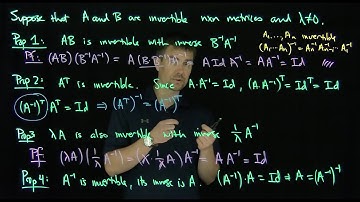 Suppose that A and B are invertible nxn matrices and λ≠0.
Prop 1: AB is invertible with inverse B⁻¹A⁻¹
A₁,...,Aₙ invertible
(A₁...Aₙ)⁻¹ = Aₙ⁻¹ Aₙ₋₁⁻¹ ... A₁⁻¹
Pf: (AB)(B⁻¹A⁻¹) = A(BB⁻¹)A⁻¹ = A Id A⁻¹ = AA⁻¹ = Id
Prop 2: Aᵀ is invertible. Since A·A⁻¹ = Id, (A·A⁻¹)ᵀ = Idᵀ = Id
(A⁻¹)ᵀAᵀ = Id ⇒ (Aᵀ)⁻¹ = (A⁻¹)ᵀ
Prop 3 λA is also invertible with inverse 1/λ A⁻¹
Pf (λA)(1/λ A⁻¹) = (λ·1/λ A)A⁻¹ = A A⁻¹ = Id
Prop 4: A⁻¹ is invertible, its inverse is A. (A⁻¹)·A = Id ⇒ A = (A⁻¹)⁻¹